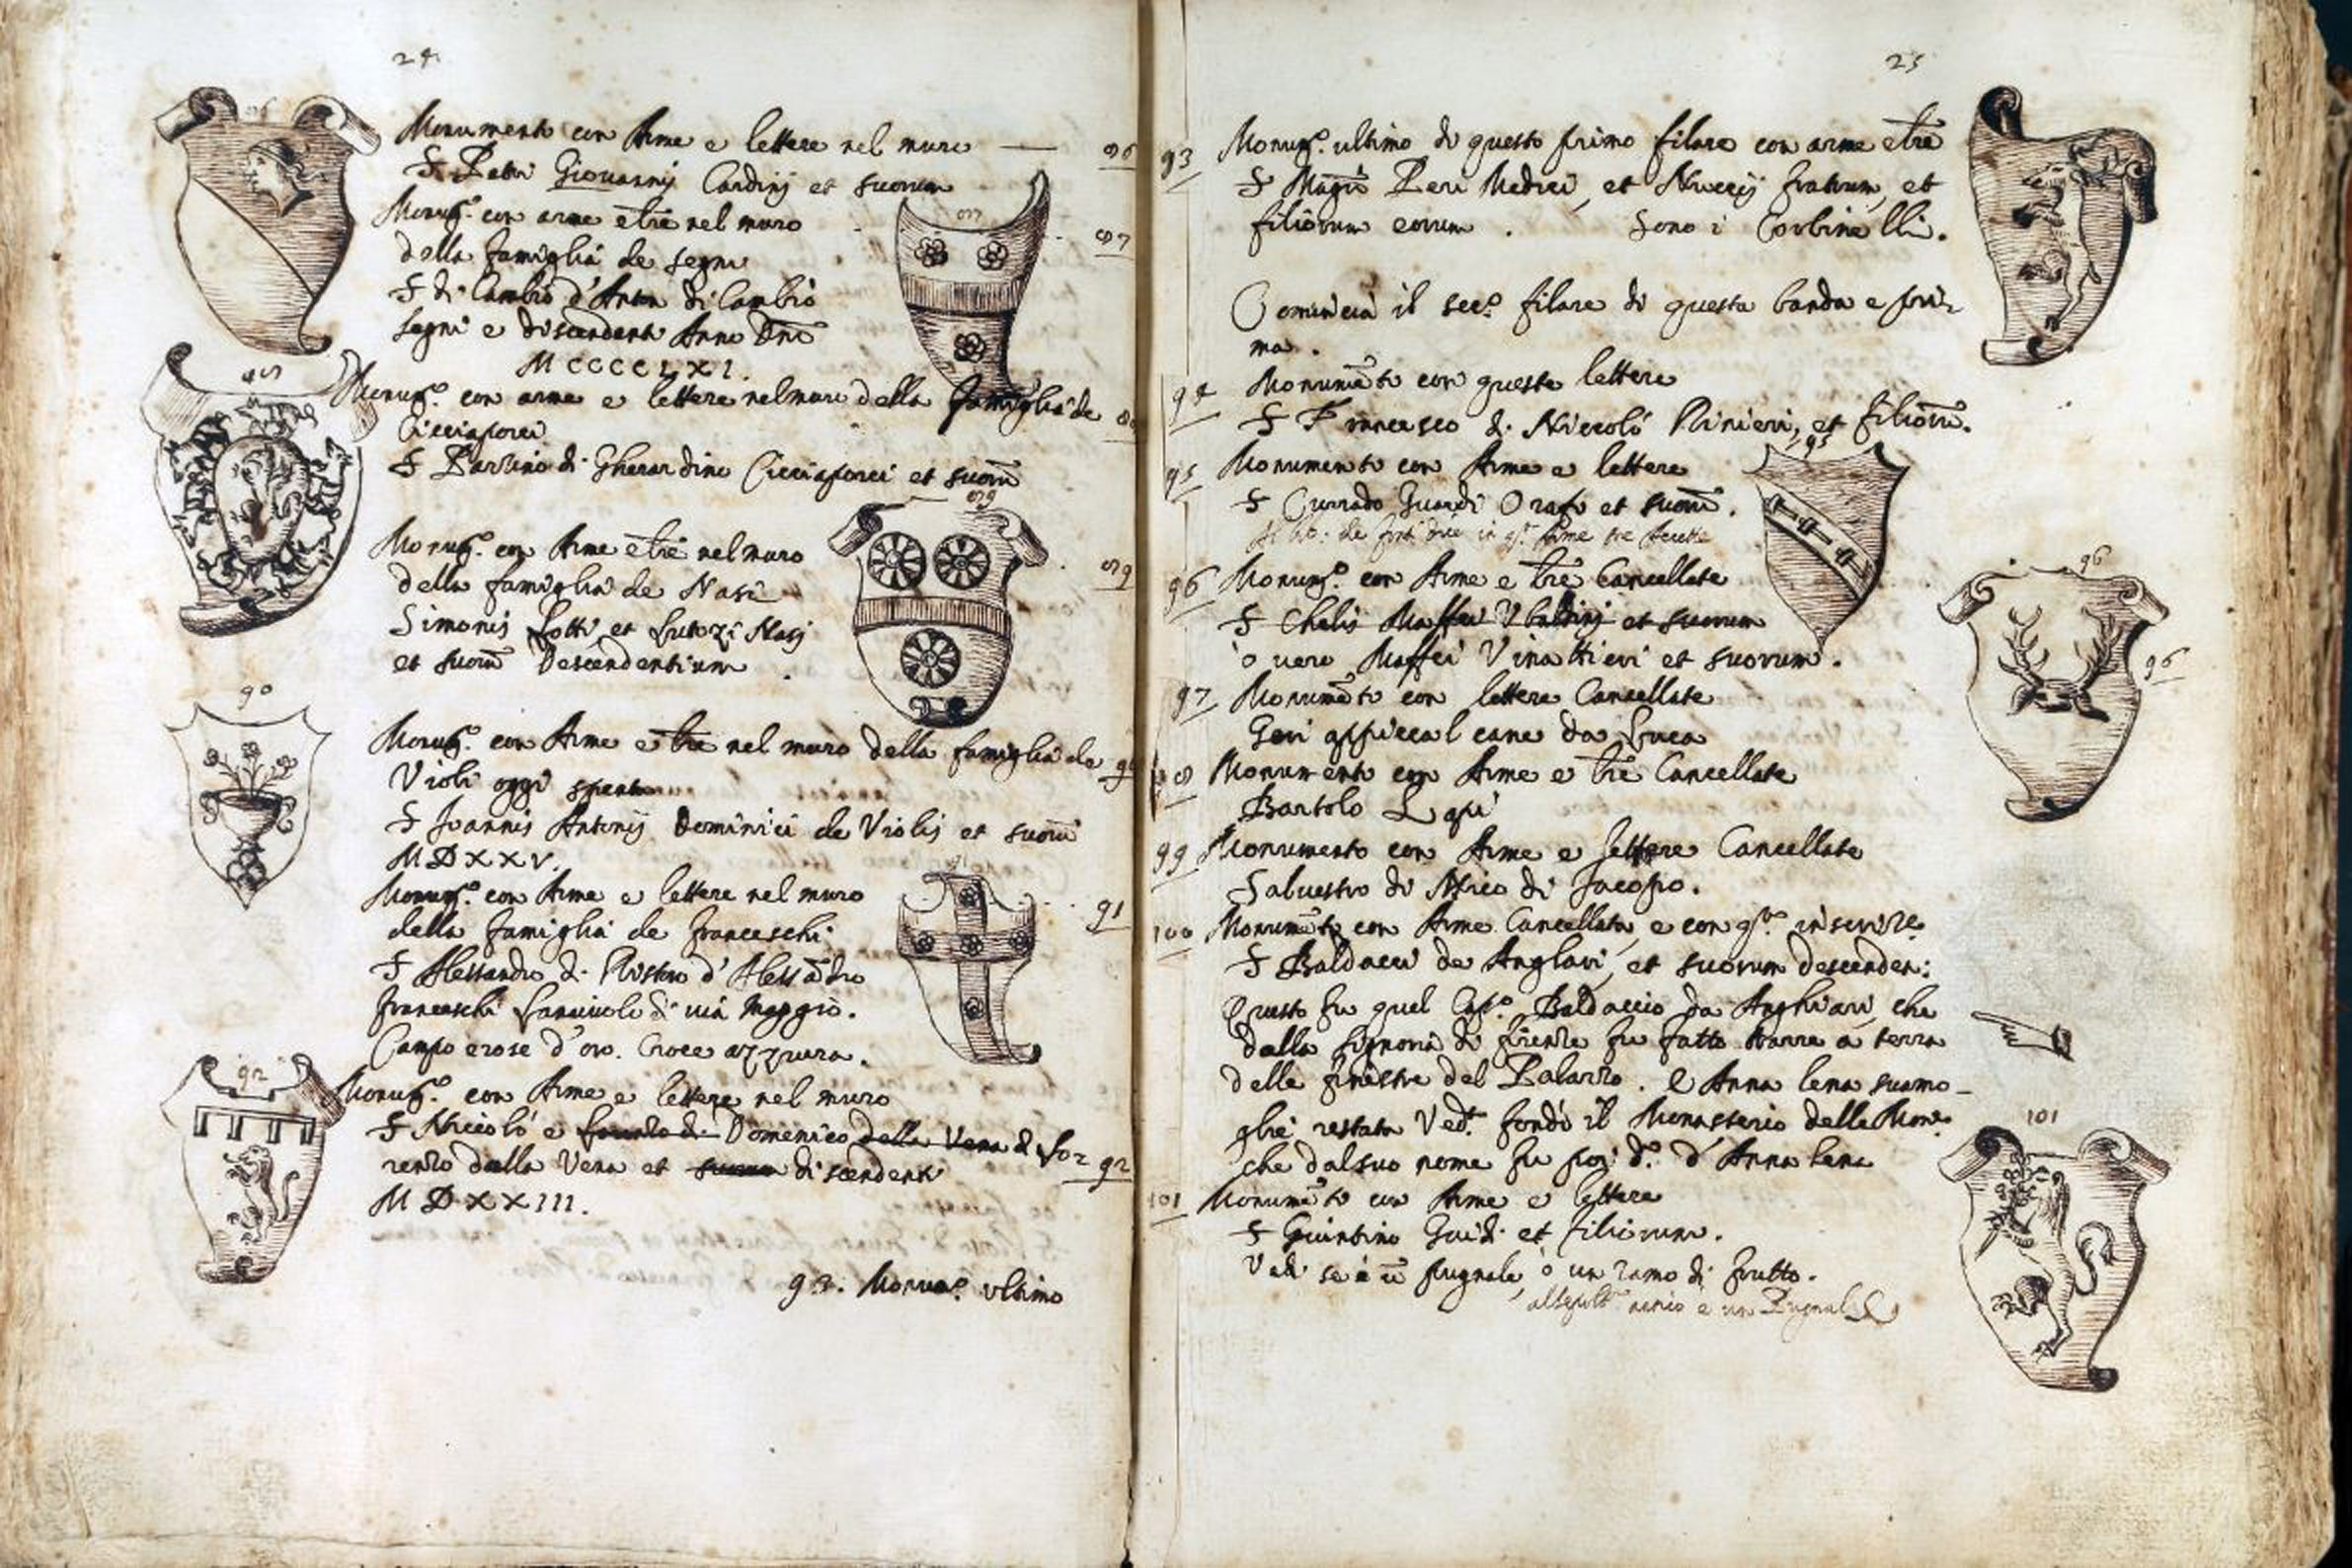 24
86
Monumento con Arme e lettere nel muro — 86
S Petri Giovannij Cardinj et suorum
Monum.to con arme e lre nel muro 87
87
della famiglia de Segni
S di Cambio d'Anton di Cambio
Segni e discendenti Anno Dni
MCCCCLXI.
88
Monum.to con arme e lettere nel muro della famiglia de 88
Cicciaporci
S Bartino di Gherardino Cicciaporci et suorū
89
Monum.to con Arme e lre nel muro 89
della famiglia de Nasi
Simonis Lotti et Luterij Nasj
et suorū Descendentium
90
Monum.to con Arme e lre nel muro della famiglia de 90
Violi oggi spenta
S Joannis Antonij Dominici de Violis et suorū
MDXXV.
91
Monum.to con Arme e lettere nel muro 91
della famiglia de Franceschi
S Alessandro di Ristoro d'Alessādro
Franceschi Lanaiuolo di via Maggio.
Campo e rose d'oro. Croce azzurra.
92
Monum.to con Arme e lettere nel muro
S Niccolò e Domenico della Vena di Lo=
renzo dalla Vena et suorum discendenti 92
MDXXIII.
93. Monum.to ultimo
25
93 Monum.to ultimo di questo primo filare con arme e lre
S Magri Peri Medici, et Nuccij fratrum, et
filiorum eorum. Sono i Corbinelli.
Comincia il sec.o filare di questa banda e pri=
ma.
94 Monumēto con queste lettere
S Francesco di Niccolò Rinieri, et filiorū.
95
95 Monumento con Arme e lettere
S Currado Guardi Orafo et suorū.
in q.a Arme tre Accette
96 Monum.to con Arme e lre Cancellate
96
S Chelis Maffei Ubaldinj et suorum
o vero Maffei Vinattieri et suorum.
96
97 Monumēto con lettere Cancellate
Geri appiccal cane da Luca
98 Monumento con Arme e lre Cancellate
Bartolo Lapi
99 Monumento con Arme e lettere Cancellate
Salvestro di Mico di Jacopo.
100 Monumēto con Arme Cancellata, e con q.ta inscriz.e
S Baldacci de Anglari, et suorum descenden:
Questo fu quel Cap.o Baldaccio da Anghiari, che
dalla Signoria di Firenze fu fatto trarre a terra
delle finestre del Palazzo. E Anna lena sua mo=
glie restata Ved.a fondò il Monasterio delle Mon.e
che dal suo nome fu poi d.o d'Anna lena
101
101 Monumēto con Arme e lettere
S Guintino Guidi et filiorum.
Vedi se è ū pugnale, o un ramo di frutto.
è un Pugnale